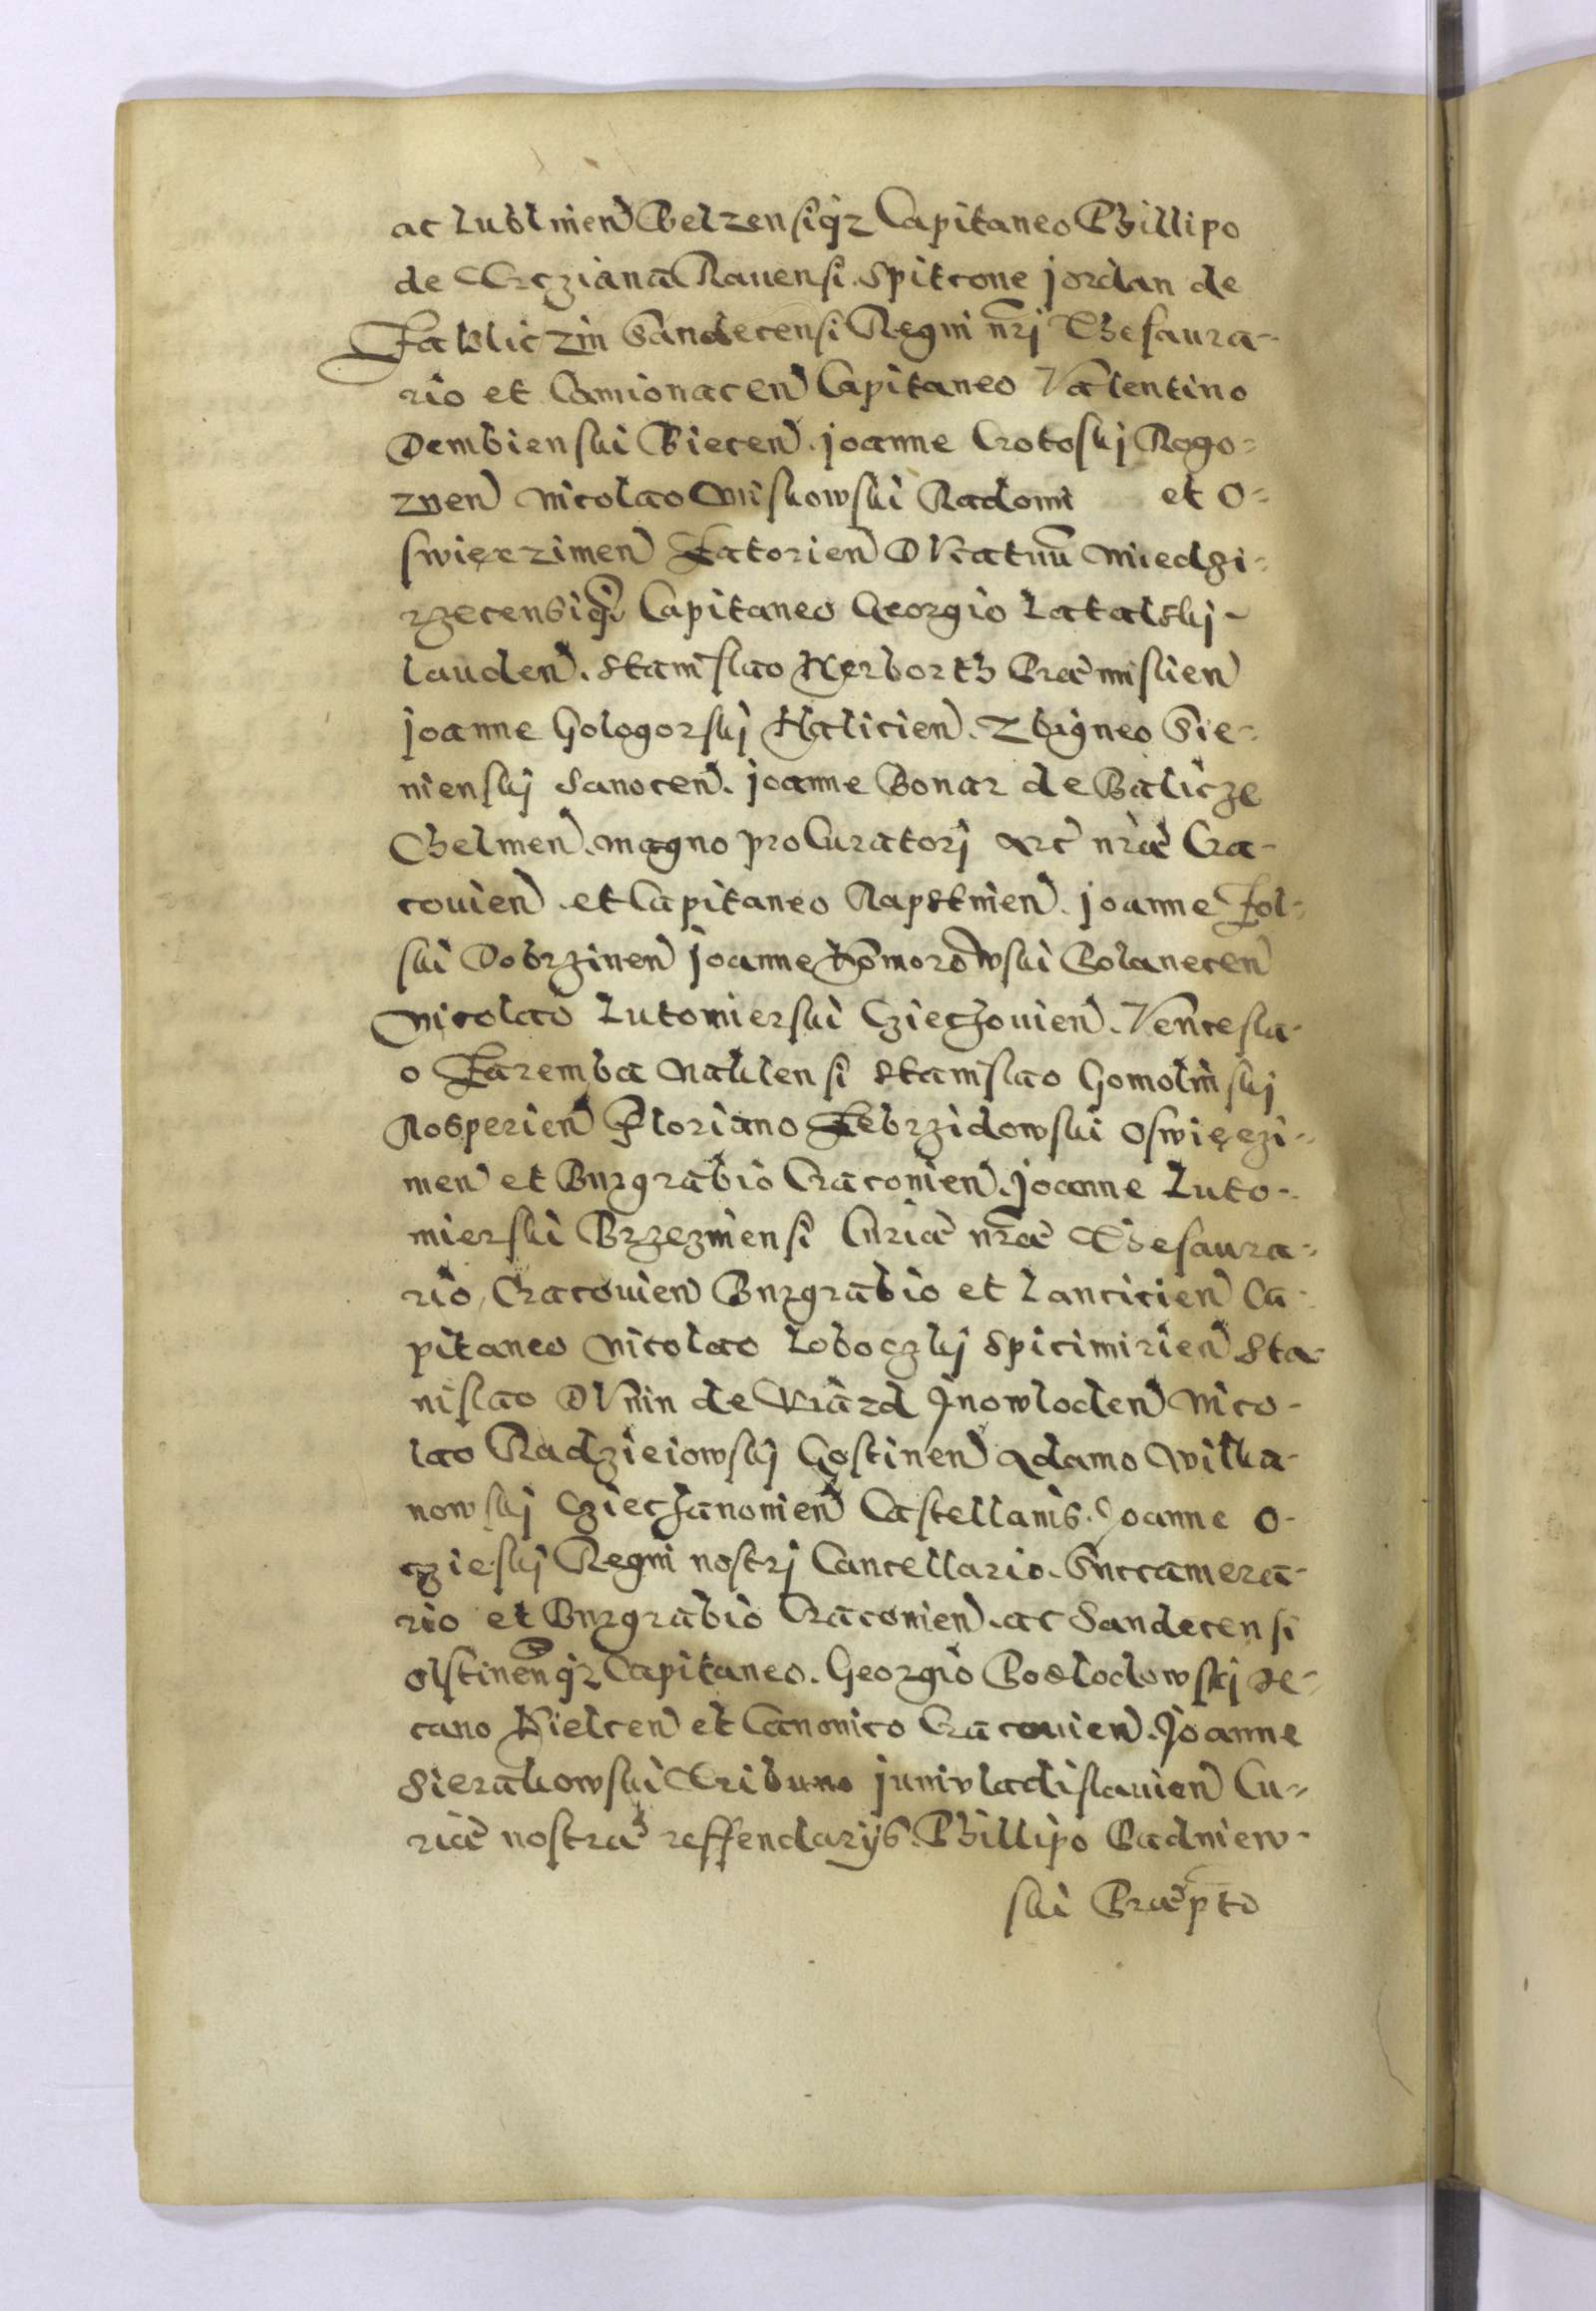 ac Lublinen Belzensiq3 Capitaneo Phillipo
de Uczianā Rauensi. Spitcone jordan de
Zakliczin Sandecensi Regni nrj Thesaura-
rio et Camionacen Capitaneo Valentino
Dembienski Biecen. joanne Crotoskj Rogo-
znen Nicolao Miskowski Radomi et O-
swięczimen Zatorien Ducatuū Miedzi-
rzecensiq3 Capitaneo Georgio Latalskj
Lauden. Stanislao Herborth Præmislien
joanne Gologorskj Halicien. Zbigneo Sie-
nienskj Sanocen. joanne Bonar de Balicze
Chelmen. magno proCuratorj arc nræ Cra-
couien. et Capitaneo Rapstinen. joanne Zol-
ski Dobrzinen joanne Komorowski Polanecen
Nicolao Lutomierski Cziechouien. Vencesla-
o Zaremba Naklensi Stanislao Gomolinskj
Rosperien Floriano Zebrzidowski Oswięczi-
men et Burgrabio Cracouien. joanne Luto-
mierski Brzezinensi Curiæ nræ Thesaura-
rio, Cracouien Burgrabio et Lancicien Ca-
pitaneo Nicolao Loboczkj Spicimirien Sta-
nislao DVnin de Vjazd Jnowloden Nico-
lao Radzieiowskj Gostinen Adamo Wilka-
nowskj Cziechanouien Castellanis. Joanne O-
czieskj Regni nostrj Cancellario. Succamera-
rio et Burgrabio Cracouien. ac Sandecensi
olstinenq3 Capitaneo. Georgio Podlodowskj De-
cano Kielcen et Canonico Cracouien. Joanne
Sierakowski Tribuno juniuladislauien Cu-
riæ nostræ reffendarijs. Phillipo Padniew-
ski Præpto